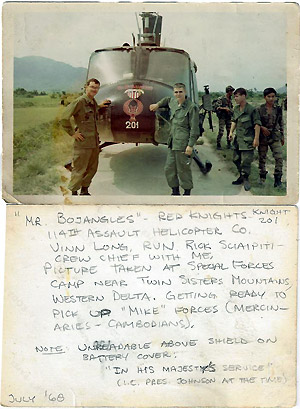 201
"MR. BOJANGLES" - RED KNIGHTS KNIGHT 201
114TH ASSAULT HELICOPTER CO.
VINH LONG, RVN. RICK SCIAIPITI-
CREW CHIEF WITH ME,
PICTURE TAKEN AT SPECIAL FORCES
CAMP NEAR TWIN SISTERS MOUNTAINS
WESTERN DELTA. GETTING READY TO
PICK UP "MIKE" FORCES (MERCIN-
ARIES - CAMBODIANS).
NOTE: UNREADABLE ABOVE SHIELD ON
BATTERY COVER:
"IN HIS MAJESTY'S SERVICE"
(I.E. PRES. JOHNSON AT THE TIME)
JULY '68